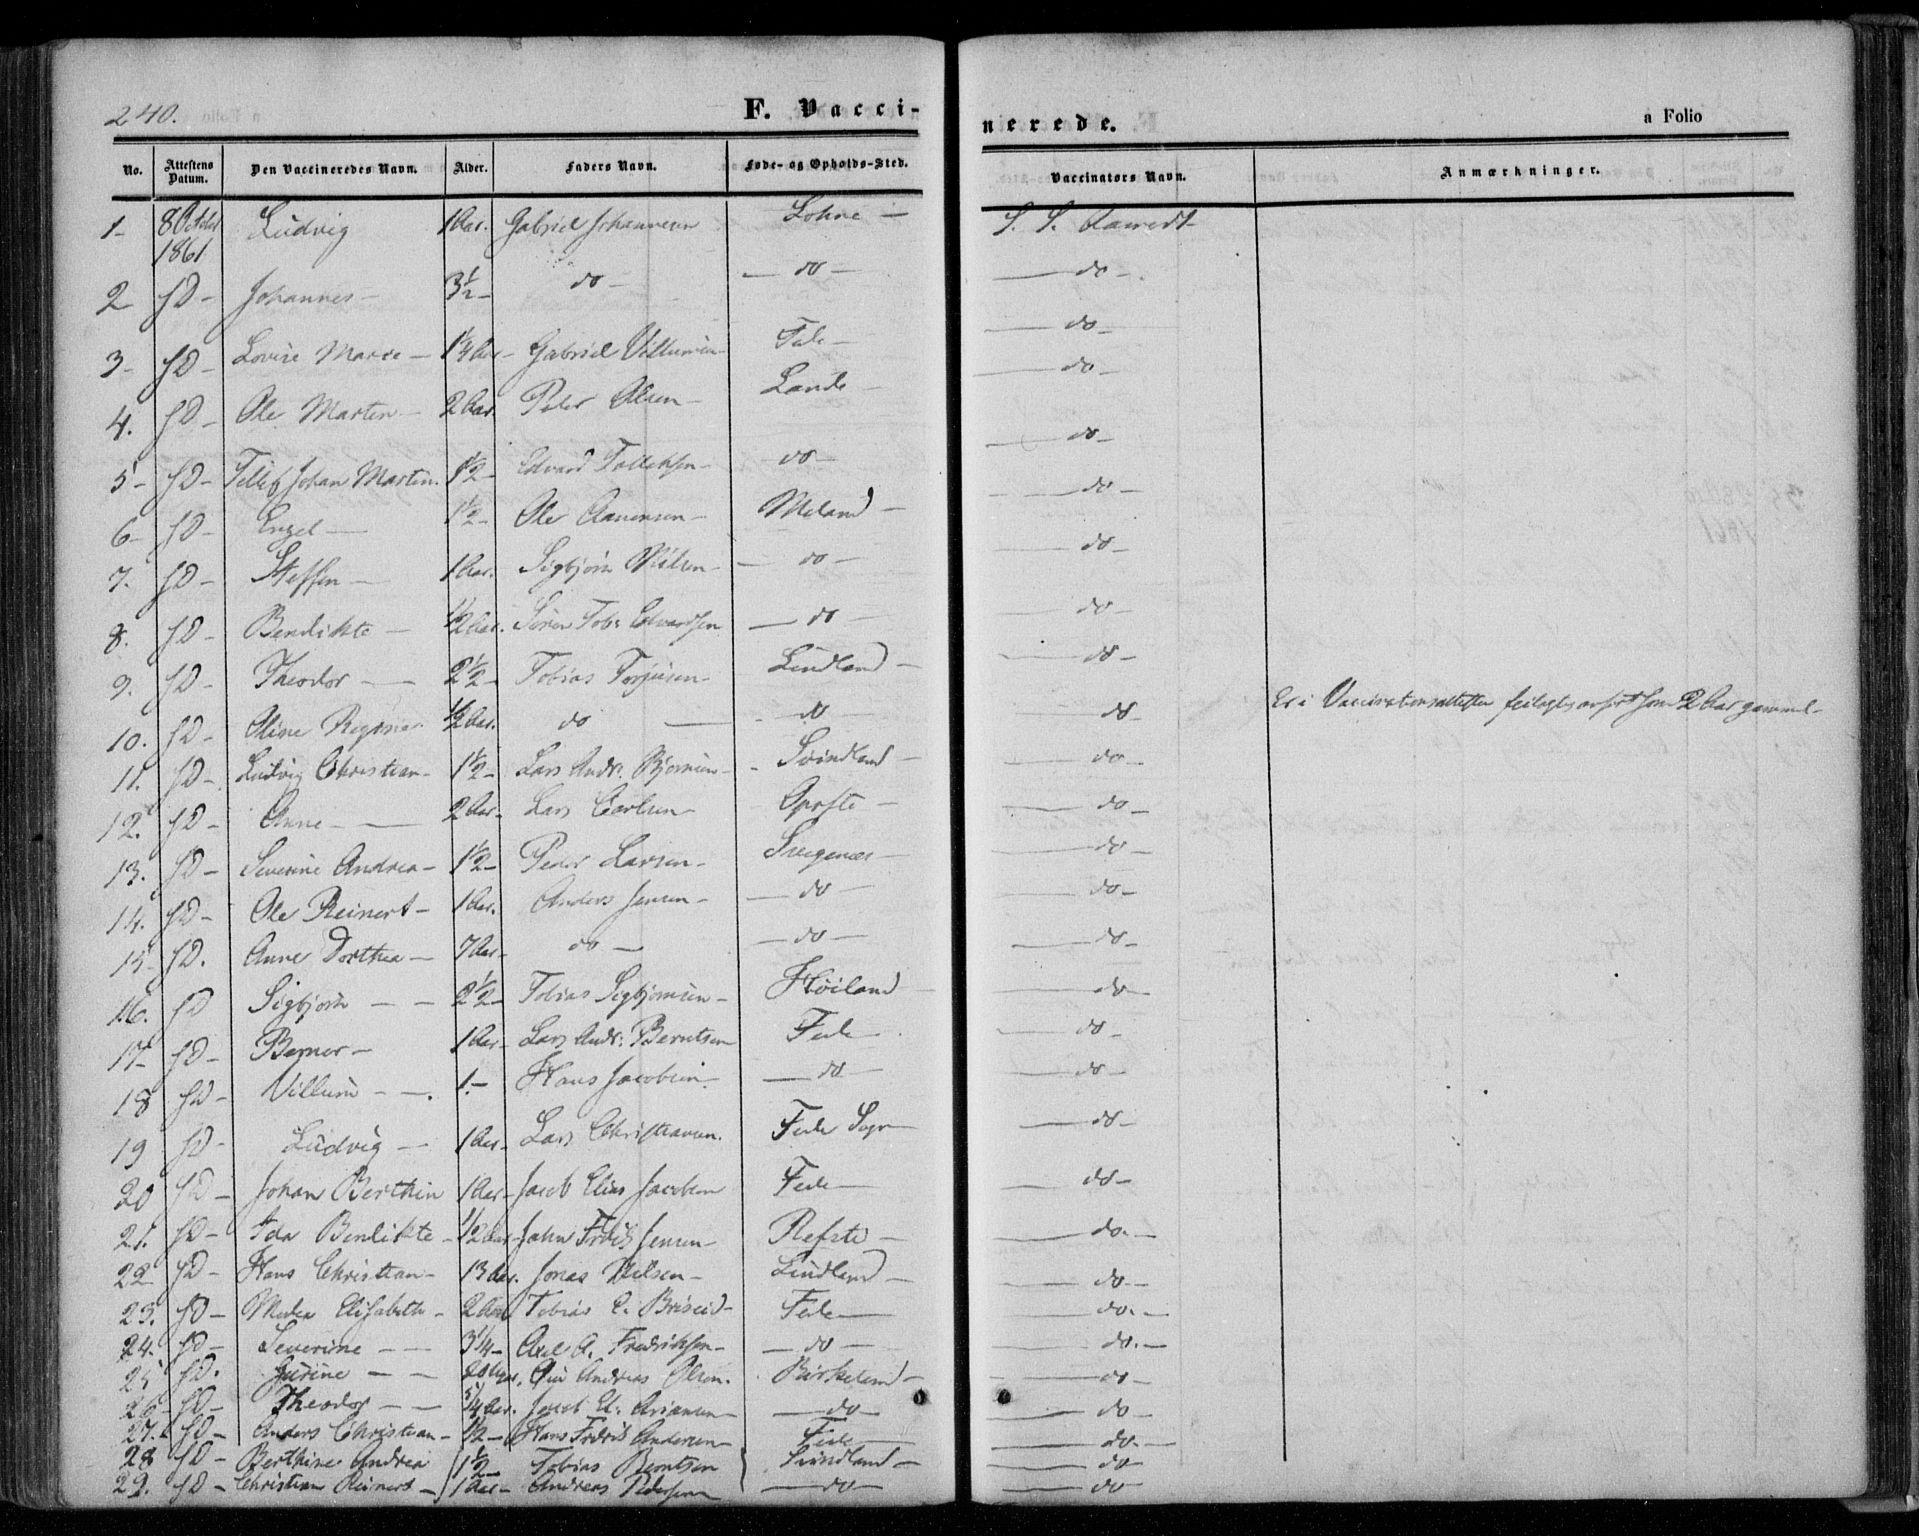 240.
F. Vacci-
nerede.
a Folio
No. Attestens Datum. Den Vaccineredes Navn. Alder. Faders Navn. Føde- og Opholds-Sted. Vaccinators Navn. Anmærkninger.
1- 8 Octbr 1861 Ludvig 1 Aar. Gabriel Johannesen Lohne - S. S.
2 sD - Johannes - 3½ - do - - do - - do -
3- sD - Lovise Marie - 1¼ Aar - Gabriel Villumsen Fede - - do -
4. sD - Ole Martin - 2 Aar. Peder Olsen - Lande - do -
5- sD - Tellef Johan Martin. 1½ - Edvard Tollefsen - do - - do -
6- sD - Engel - 1½ - Ole Aanensen - Meland - - do -
7. sD - Steffen - 1 Aar. Sigbjørn Nilsen - - do - - do -
8. sD - Bendikte - ½ Aar. Søren Tobs Edvardsen - do - - do -
9. sD - Theodor - - 2½ - Tobias Torjusen - Lindland - - do -
10. sD - Oline Regine ½ Aar. do - - do - do - Er i Vaccinationsattesten feilagtig anført som 2 Aar gammel -
11. sD - Ludvig Christian - 1½ - Lars Andr. Bjornsen - - Svindland - - do -
12. sD - Anne - - 2 Aar - Lars Carlsen - Opofte - - do -
13. sD - Severine Andrea - 1½ - Peder Larsen - Svegenæs - - do -
14. sD - Ole Reinert - 1 Aar. Anders Jensen - - do - - do -
15- sD. Anne Dorthea - 7 Aar - do - - do - - do -
16. sD Sigbjørn - - 2½ - Tobias Sigbjornsen - Høiland - - do -
17- sD - Berner - 1 Aar - Lars Andr. Berntsen Fede - - do -
18 sD - Villum - -. 1. - Hans Jacobsen. - do - - do -
19 sD - Ludvig - 1 Aar - Lars Christiansen. Fede Sogn - do -
20 sD - Johan Berthin 1 Aar - Jacob Elias Jacobsen Fede - - do -
21. sD - Ida Bendikte - ½ Aar - John Fredk Jensen - Refste - - do. -
22 sD - Hans Christian - 13 Aar. Jonas Nilsen - Lindland - - do -
23. sD - Elisabeth - 2 Aar Tobias E. Briseid - Fede - - do. -
24. sD - Severine - - 3¼ - Axel A. Fredriksen - - do - - do. -
25 sD. Jurine - - Andreas Olsen. Birkeland - - do -
26 - sD - Theodor - - 5/4 Aar. Jacob El. Ariansen - - do - - do -
27. sD - Anders Christian - 1½ - Hans Fredrik Andersen - Fede - - do. -
28 sD - Berthine Andrea 1½ - Tobias Berntsen Svindland - - do
29. sD - Christian Reinert - 1 Aar - Andreas Pedersen - do - - do